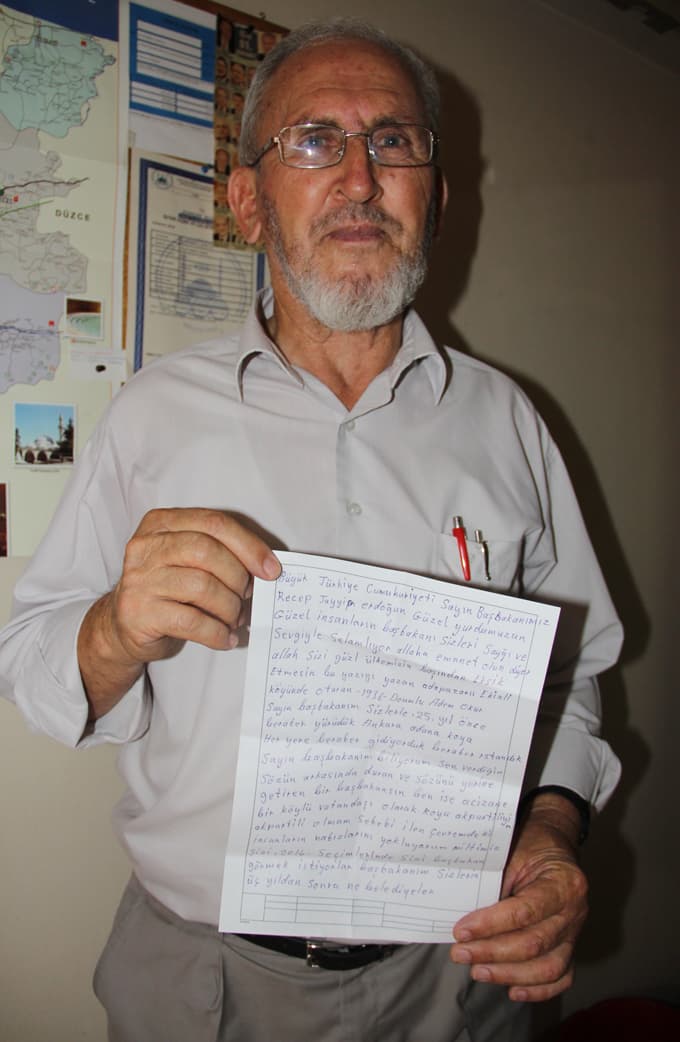 DÜZCE
Büyük Türkiye Cumuhuriyeti Sayın Başbakanımız
Recep Tayyip erdoğun Güzel yurdumuzun
Güzel insanların başbakanı Sizleri Saygı ve
Sevgiyle Selamlıyor allaha emanet olun diyor
allah Sizi güzl ülkemizin başından Eksik
Etmesin bu yazıyı yazan adapazarı
köyünde oturan -1936- Doumlu Adem Okur
Sayın başbakanım Sizlerle -25- yıl önce
beraber yürüdük Ankara adana
Her yere beraber gidiyorduk beraber
Sayın başbakanım biliyorum Sen verdiğin
Sözün arkasında duran ve Sözünü yerine
getiren bir başbakansın ben ise acizane
bir köylü vatandaşı olarak koyu akpartiliyim
akpartili olmam Sebebi ilen çevremdeki
insanların nabızlarını yokluyorum
Sizi Seçimlerinde Sizi başbakan
görmek istiyorlar başbakanım Sizlerin
üç yıldan Sonra ne belediyeler